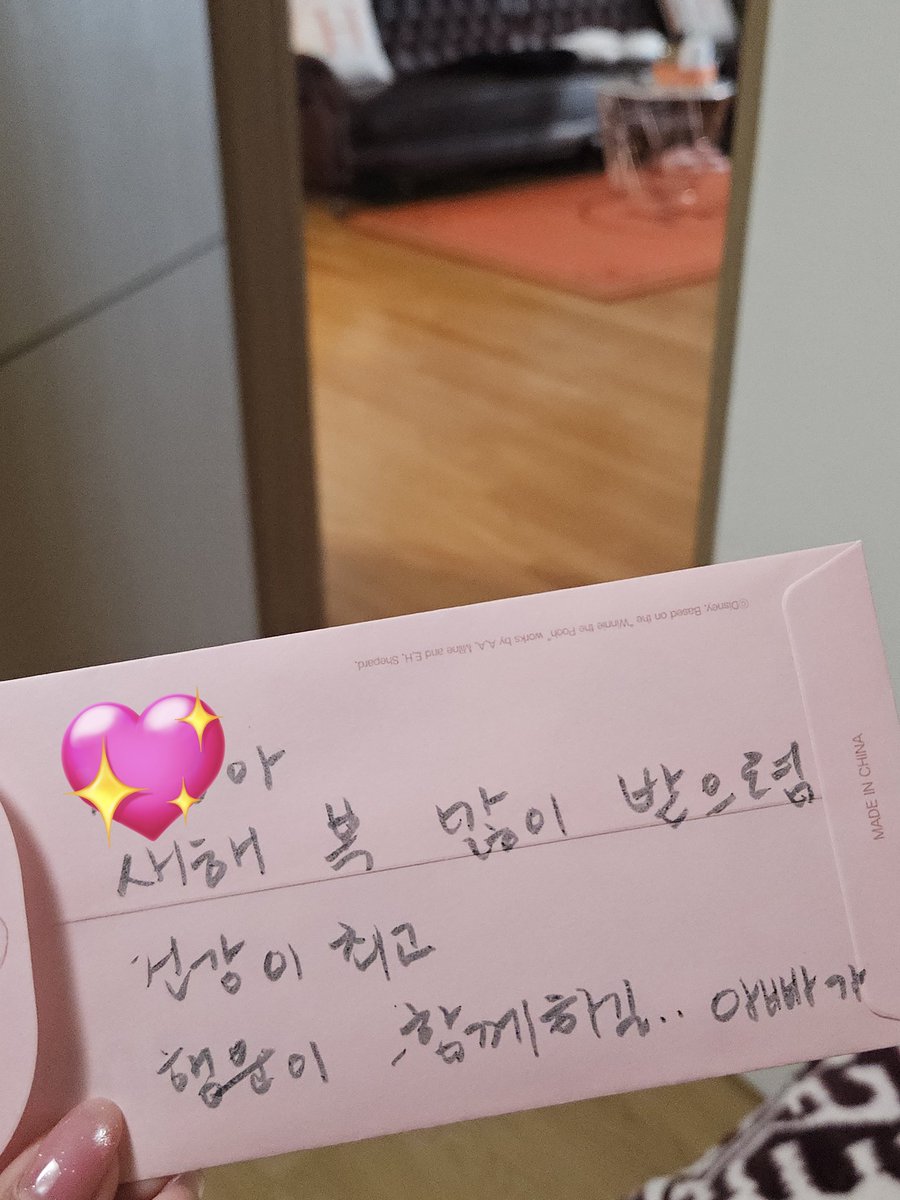 ©Disney. Based on the "Winnie the Pooh" works by A.A. Milne and E.H. Shepard.
MADE IN CHINA
아
새해 복 많이 받으렴
건강이 최고
행운이 함께하길.. 아빠가